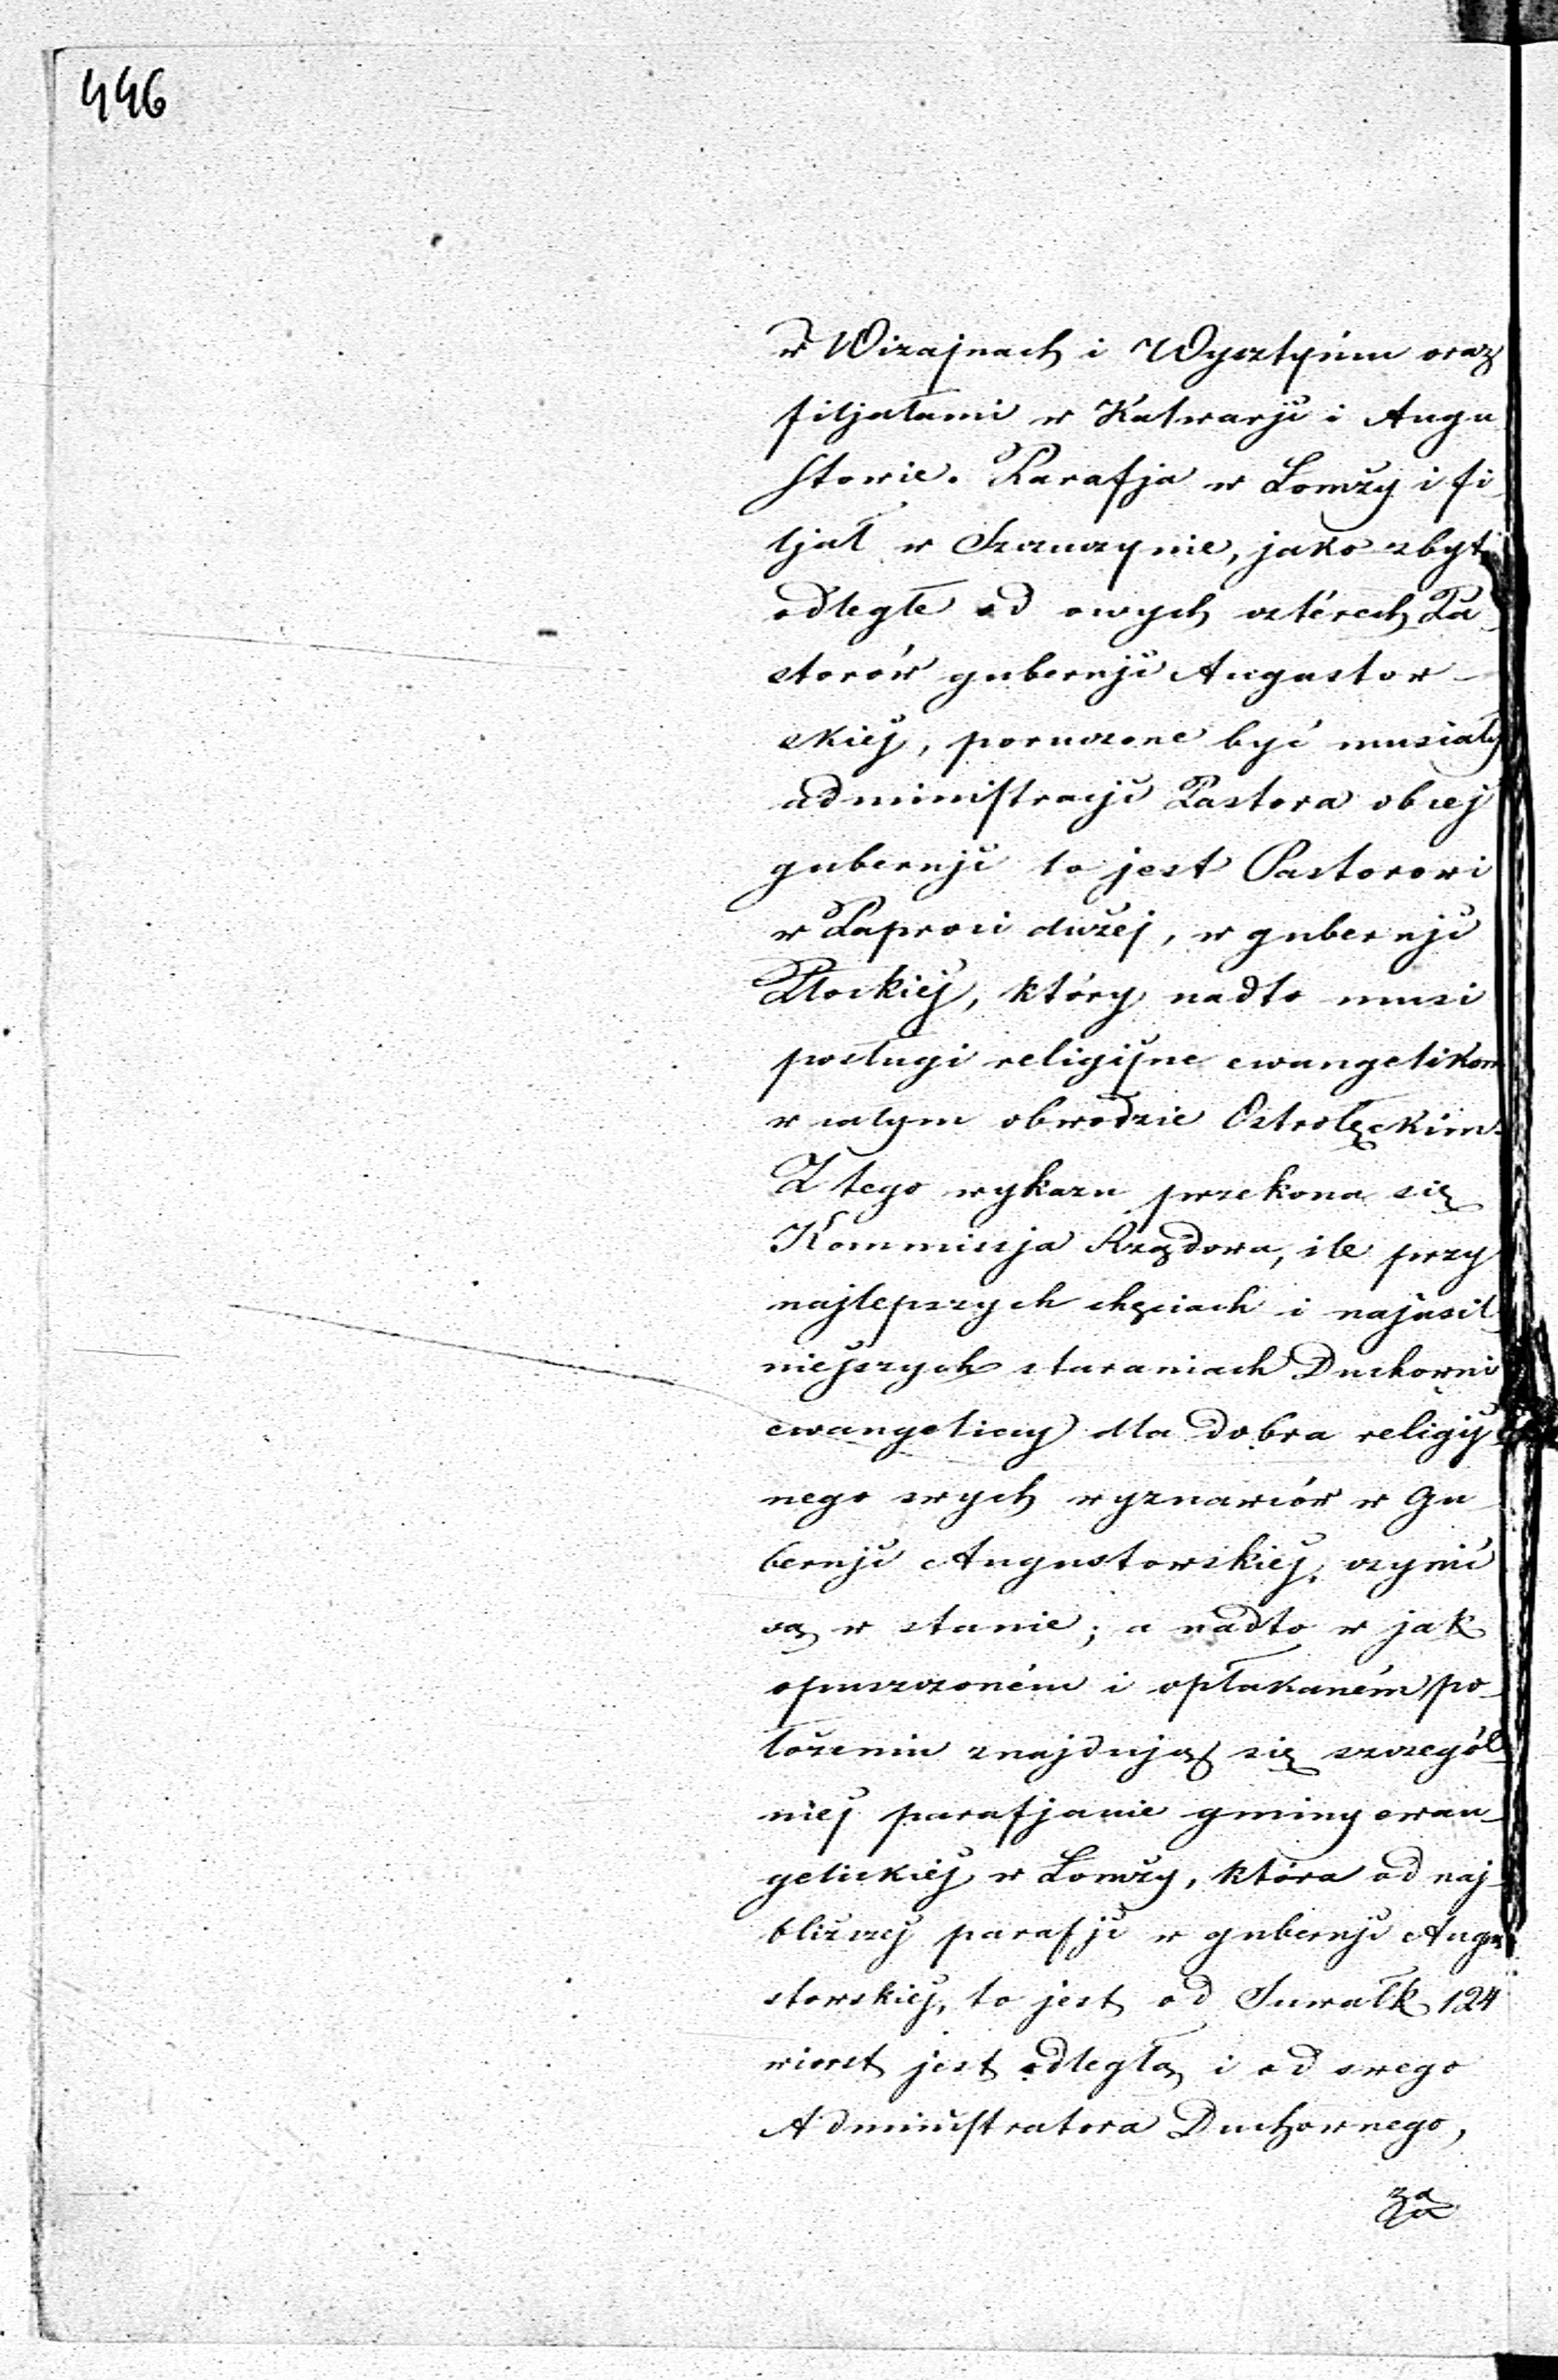 446
w Wizajnach i Wysztyńcu oraz
filjałami w Kalwarji i Augu
stowie. Parafja w Łomży i fi-
ljał w Szczuczynie, jako zbyt
odległe od owych cztérech Pa-
storów gubernji Augustow-
skiej, poruczone być musiały
administracji Pastora obcej
gubernji to jest Pastorowi
w Paproci dużej, w gubernji
Płockiej, który nadto musi
posługi religijne ewangelikom
w całym obwodzie Ostrołęckim.
Z tego wykazu przekona się
Kommissja Rządowa, ile przy
najlepszych chęciach i najusil-
niejszych staraniach Duchowni
ewangeliccy dla dobra religij-
nego swych wyznawców w Gu-
bernji Augustowskiej, czynić
są w stanie; a nadto w jak
opuszczoném i opłakaném po-
łożeniu znajdują się szczegól-
niej parafjanie gminy ewan-
gelickiej w Łomży, która od naj-
bliższej parafji w gubernji Augu
stowskiej, to jest od Suwałk 124
wiorst jest odległą i od swego
Administratora Duchownego,
za